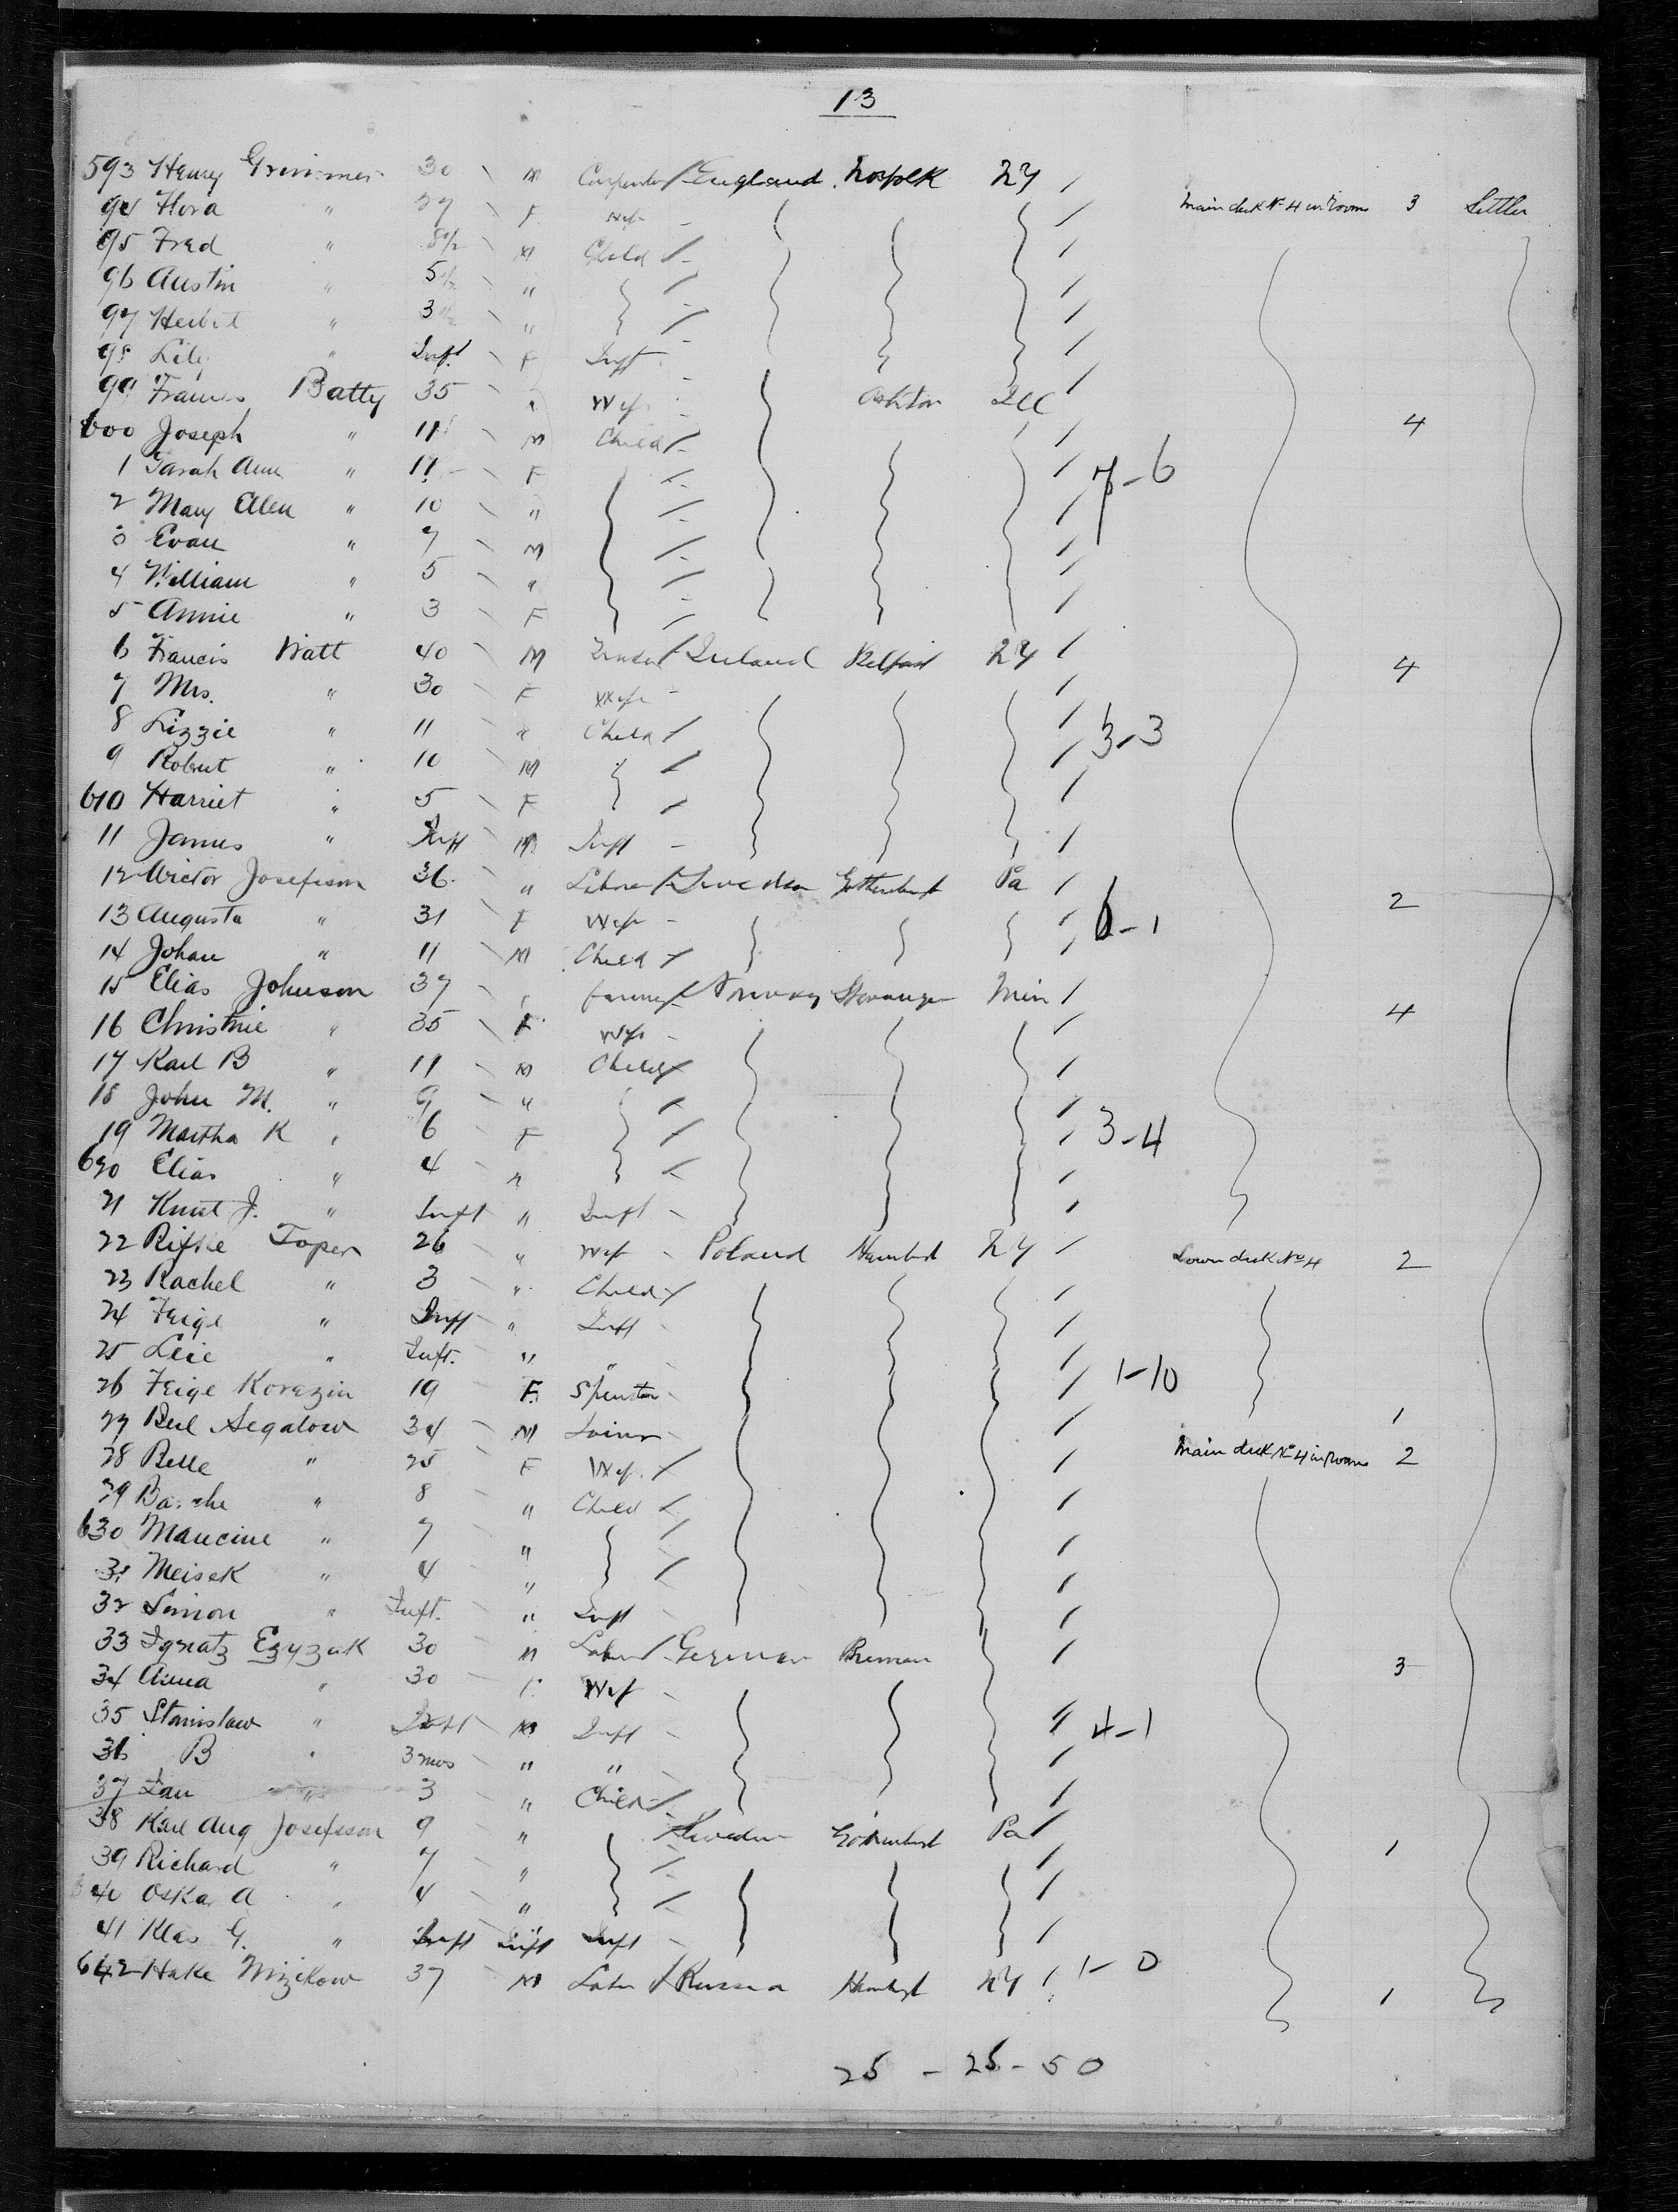 13
593 Henry Grimmer 30 M Carpenter England Norfolk NY
94 Flora " 27 F Wife Main deck No 4 in rooms 3 Settler
95 Fred " 8 1/2 M Child
96 Austin " 5 1/2 "
97 Herbert " 3 1/2 "
98 Lily " Inft. F Inft
99 Frances Batty 35 " Wife Ashton Ill
600 Joseph " 11 M Child 4
1 Sarah Ann " 11 F 7-6
2 Mary Ellen " 10 "
3 Evan " 7 M
4 William " 5 "
5 Annie " 3 F
6 Francis Watt 40 M Ireland Belfast NY 4
7 Mrs. " 30 F Wife
8 Lizzie " 11 " Child 3-3
9 Robert " 10 M
610 Harriet " 5 F
11 James " Inft M Inft
12 Victor Josefsson 36 " Labourer Sweden Gothenburg Pa 2
13 Augusta " 31 F Wife 6-1
14 Johan " 11 M Child
15 Elias Johnson 37 " Farmer Norway Stavanger Min 4
16 Christine " 35 F Wife
17 Karl B " 11 M Child
18 John M. " 9 "
19 Martha K " 6 F 3-4
620 Elias " 4 "
21 Knut J. " Inft " Inft
22 Rifke Toper 26 " Wife Poland Hamburg NY Lower deck No 4 2
23 Rachel " 3 " Child
24 Feige " Inft " Inft
25 Leie " Inft. " "
26 Feige Korezin 19 F. Spinster 1-10
27 Berl Segalow 34 M 1
28 Belle " 25 F Wife Main deck No 4 in rooms 2
29 " 8 " Child
630 Maucine " 7 "
31 Meisek " 4 "
32 Simon " Inft. " Inft
33 Ignatz Ezyzak 30 M Labr German Bremen 3
34 Anna " 30 F Wife
35 Stanislaw " Inft M Inft 4-1
36 B " 3 mos " "
37 Jan " 3 " Child
38 Karl Aug Josefsson 9 " Sweden Gothenburg Pa
39 Richard " 7 " 1
40 Oskar A " 4 "
41 Klas G. " Inft Inft Inft
642 Hake Nizikow 37 M Labr Russia Hamburg NY 1-0 1
25 - 25 - 50